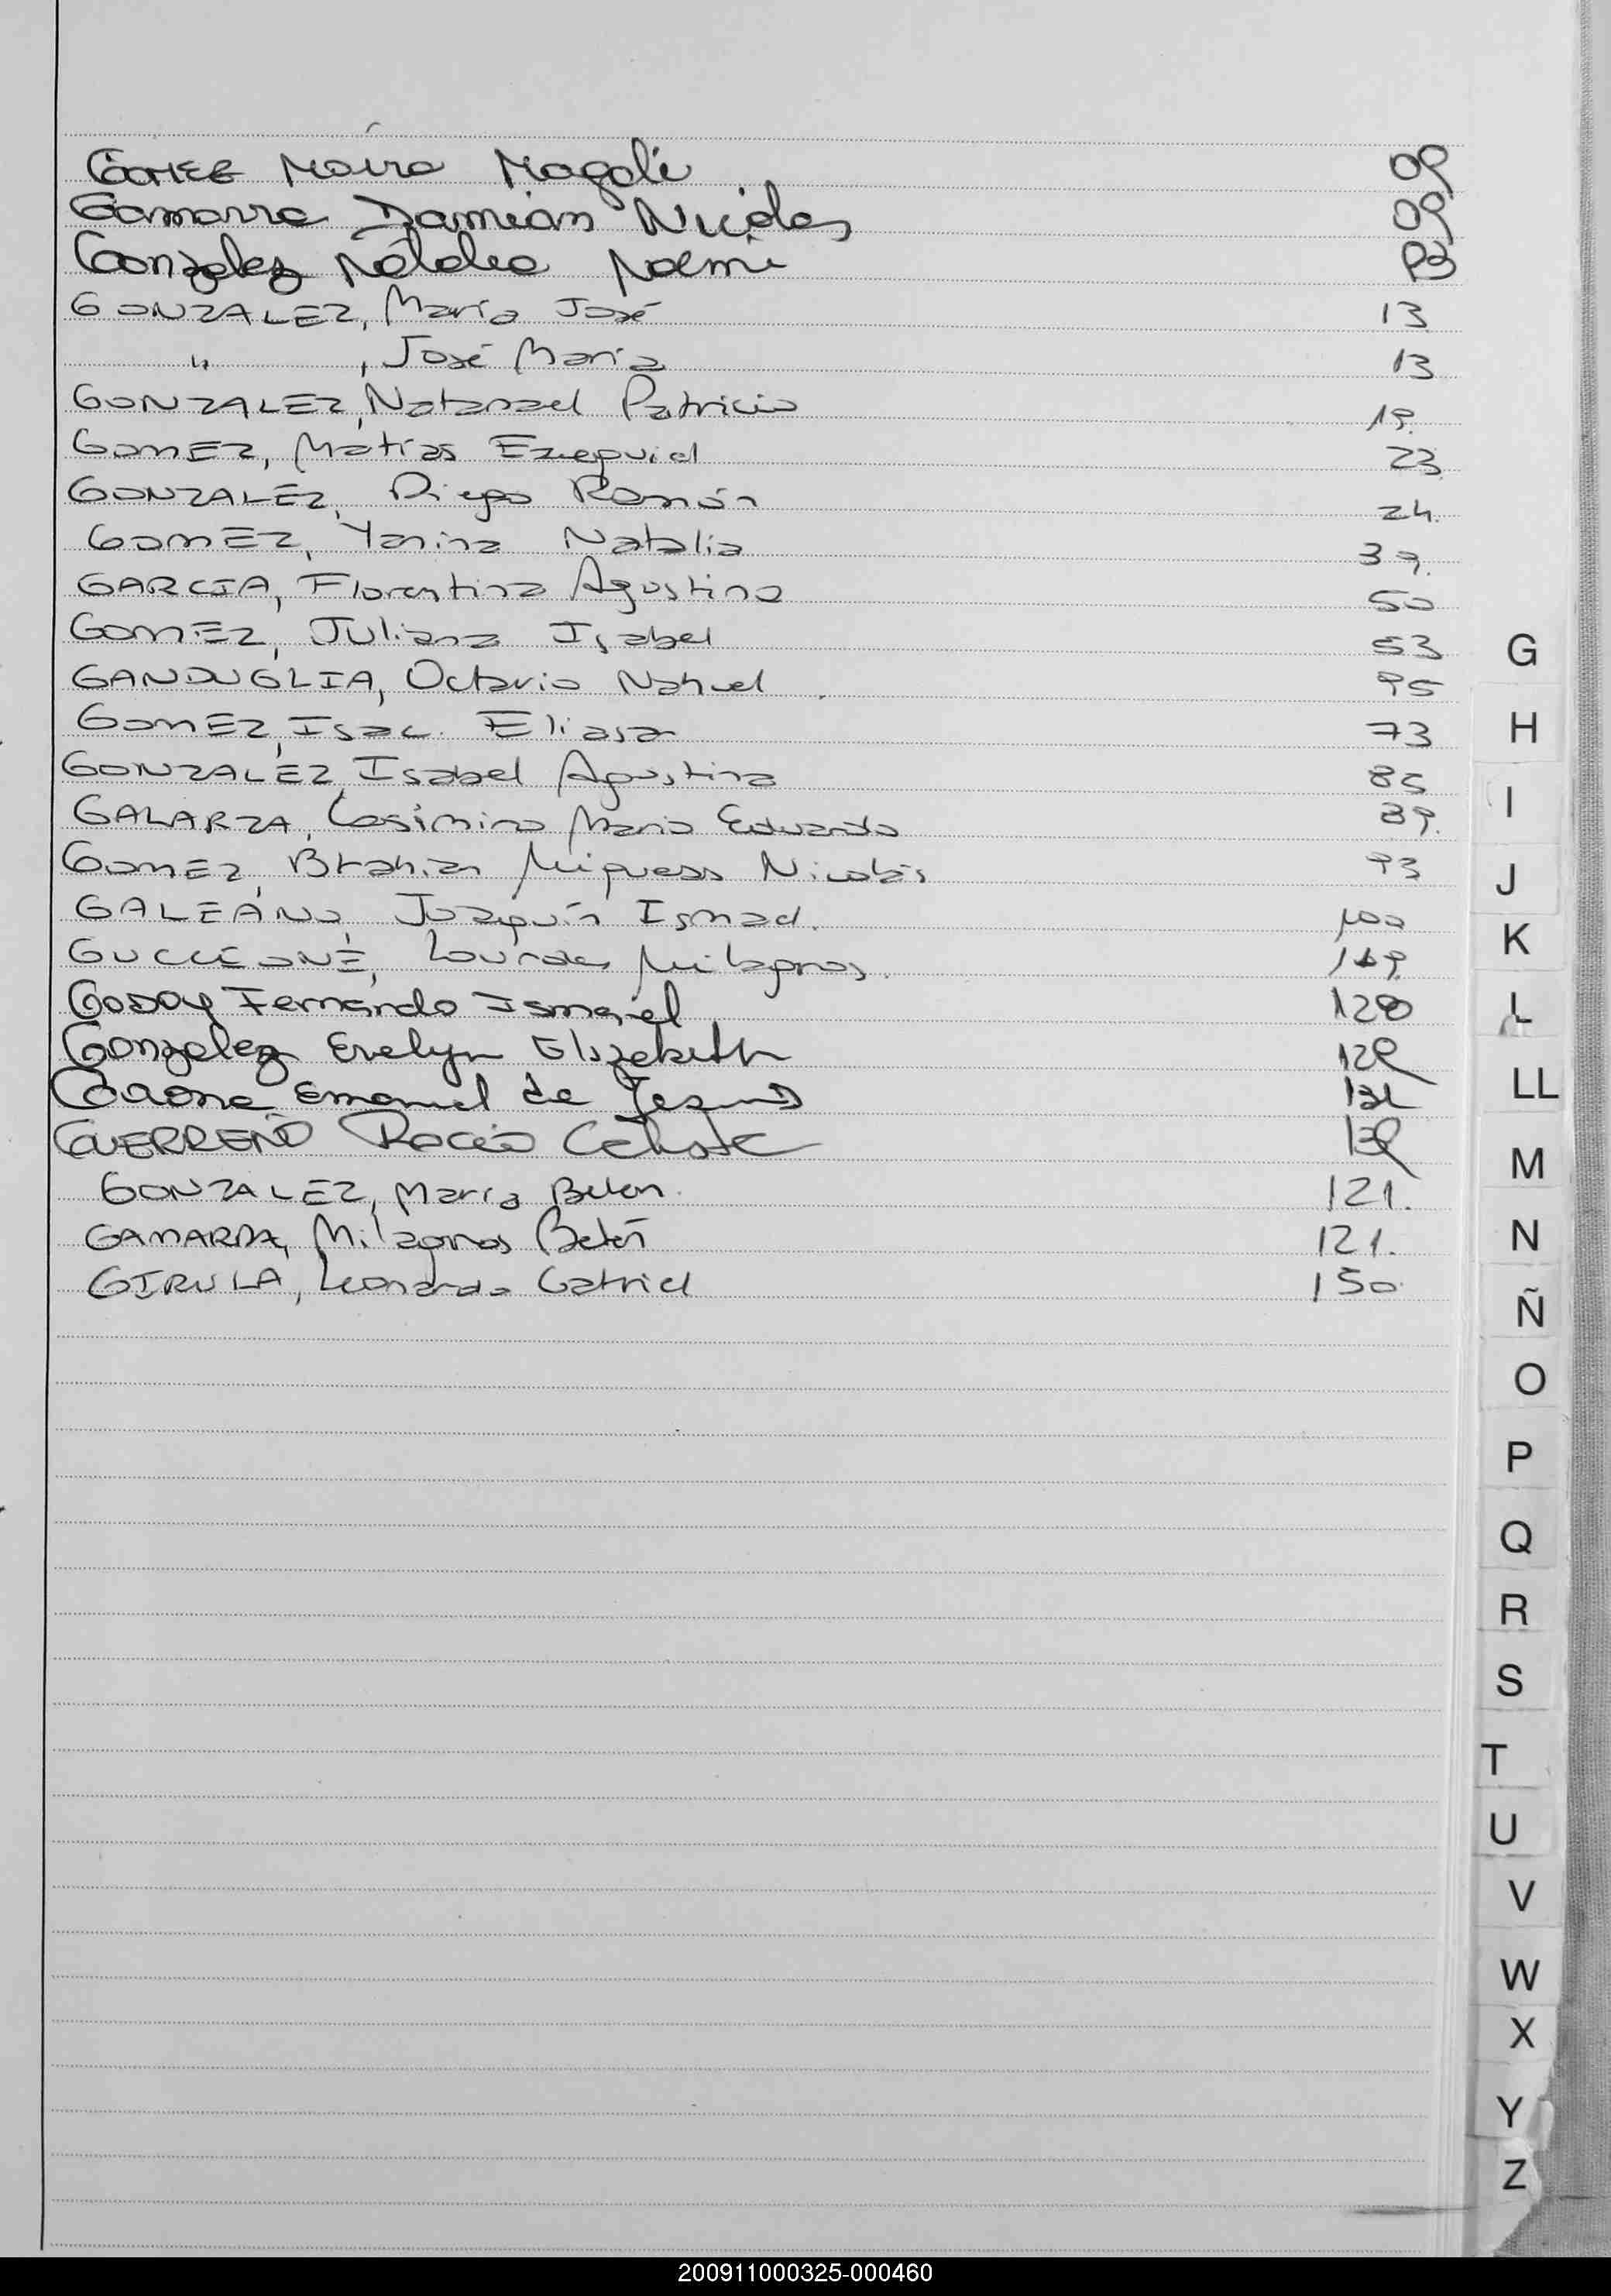 GOMEZ Maira Magali 09
Gamarra Damian Nicolas 09
Gonzalez Natalia Noemi
GONZALEZ, María José 13
" , José María 13
GONZALEZ, Natanael Patricio 19.
GOMEZ, Matías Ezequiel 23
GONZALEZ, Diego Ramón 24.
GOMEZ, Yanina Natalia 39.
GARCIA, Florentina Agustina 50
GOMEZ, Juliana Isabel 53
GANDUGLIA, Octavio Nahuel
GOMEZ, Isac. 73
GONZALEZ, Isabel Agustina 85
GALARZA, Casimiro Mario Eduardo 89.
GOMEZ, Nicolás 93
GALEANO, Joaquín Ismael. 100
Lourdes Milagros.
GODOY Fernando Ismael 120
Gonzalez Evelyn Elizabeth
Emanuel de Jesus
GUERREÑO Rocio Celeste
GONZALEZ, María Belen. 121.
GAMARRA, Milagros Belén 121.
GIRULA, Leonardo Gabriel 150.
G
H
I
J
K
L
LL
M
N
Ñ
O
P
Q
R
S
T
U
V
W
X
Y
Z
200911000325-000460